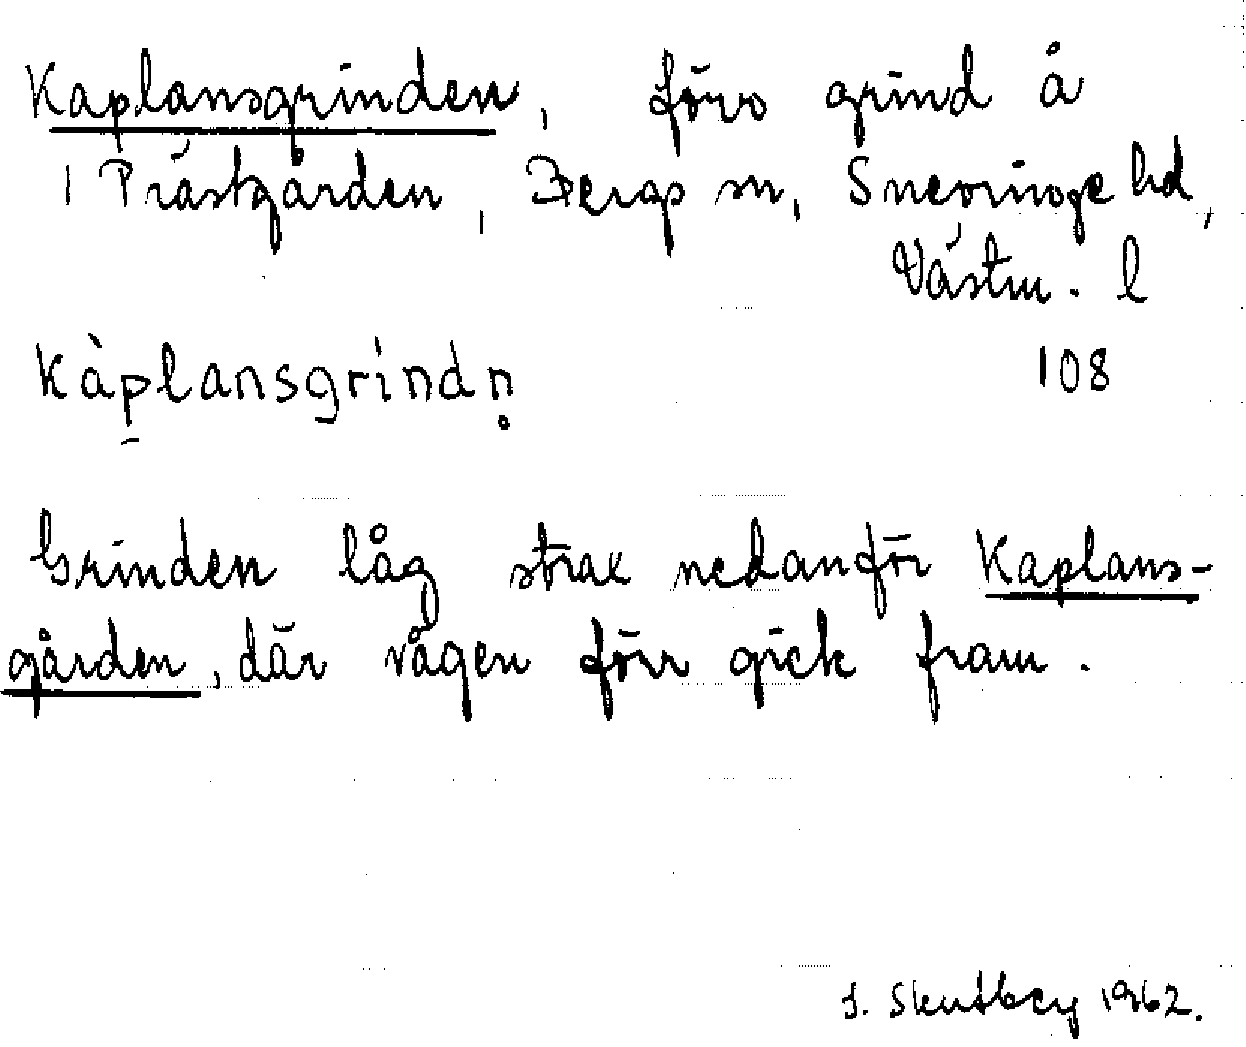 Kaplansgrinden, förv grind å
1 Prästgården, Bergs sn, Snevringe hd,
Västm. l
kàplansgrindn̥ 108
Grinden låg strax nedanför Kaplans-
gården, där vägen förr gick fram.
J. Skutbey 1962.